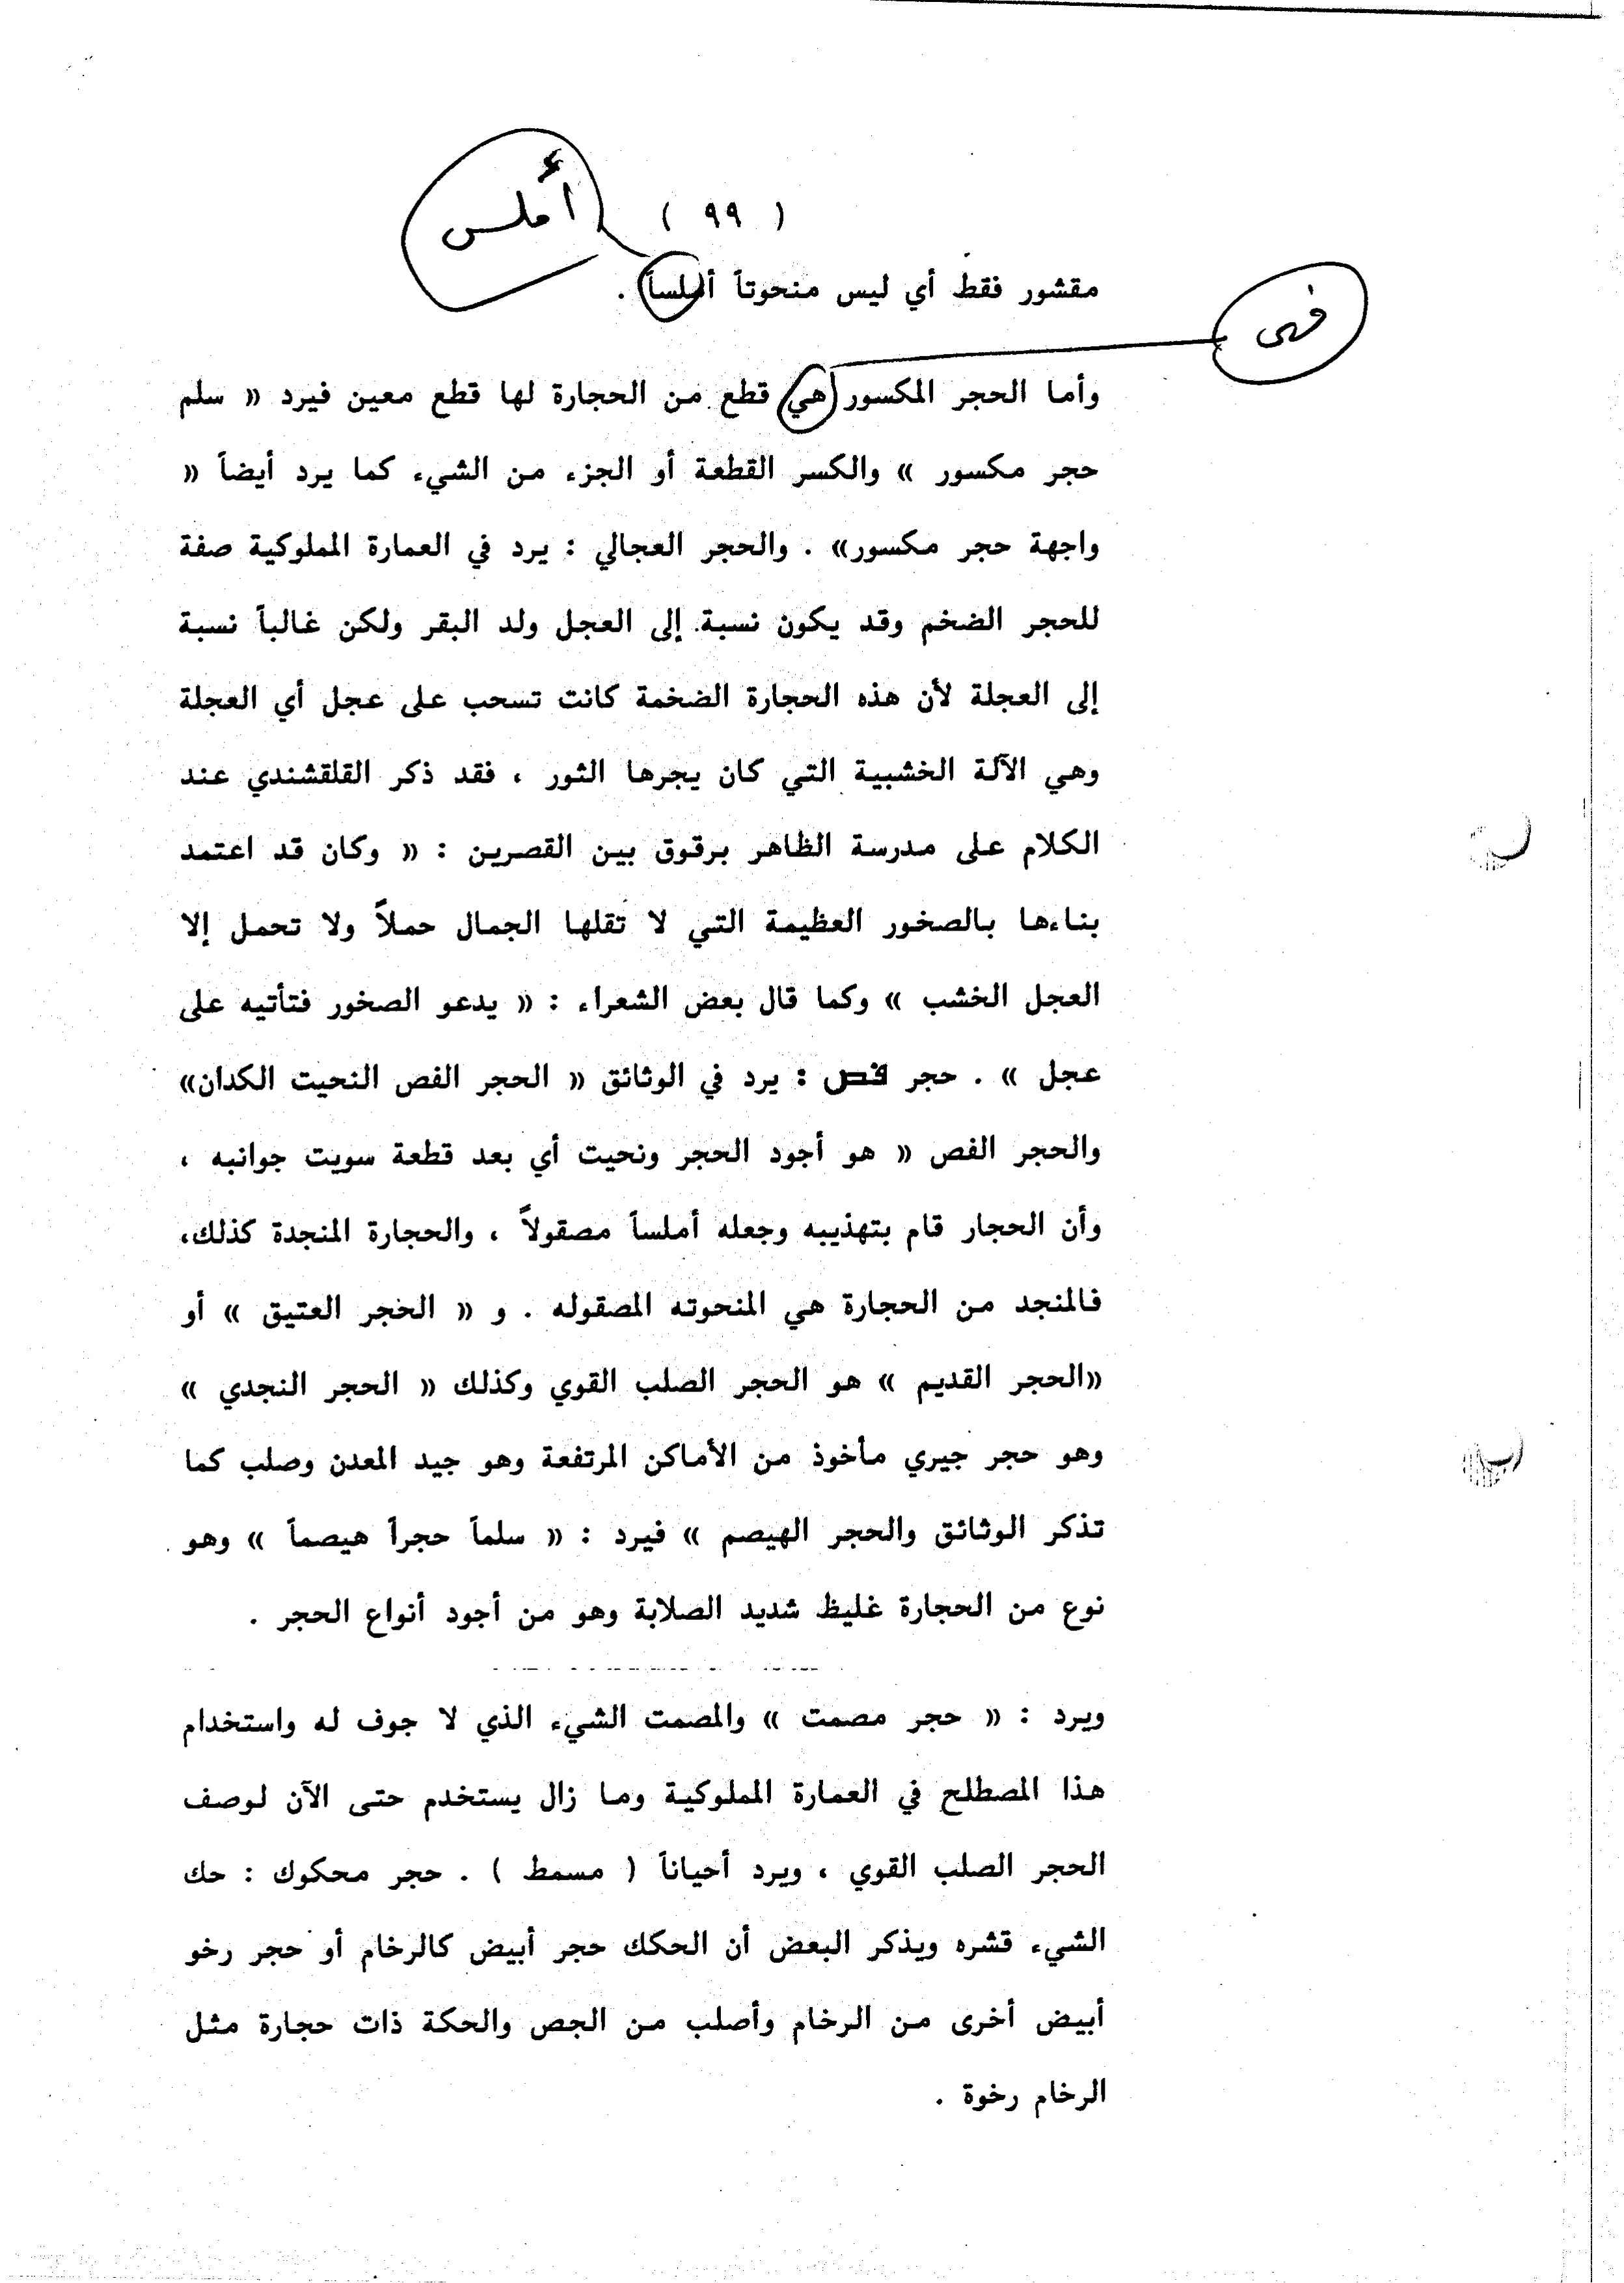 أملس
( ٩٩ )
مقشور فقط أي ليس منحوتاً أملساً .
فهى
وأما الحجر المكسور هي قطع من الحجارة لها قطع معين فيرد « سلم
حجر مكسور » والكسر القطعة أو الجزء من الشيء كما يرد أيضاً «
واجهة حجر مكسور» . والحجر العجالي : يرد في العمارة المملوكية صفة
للحجر الضخم وقد يكون نسبة إلى العجل ولد البقر ولكن غالباً نسبة
إلى العجلة لأن هذه الحجارة الضخمة كانت تسحب على عجل أي العجلة
وهي الآلة الخشبية التي كان يجرها الثور ، فقد ذكر القلقشندي عند
الكلام على مدرسة الظاهر برقوق بين القصرين : « وكان قد اعتمد
بناءها بالصخور العظيمة التي لا تقلها الجمال حملاً ولا تحمل إلا
العجل الخشب » وكما قال بعض الشعراء : « يدعو الصخور فتأتيه على
عجل » . حجر فص : يرد في الوثائق « الحجر الفص النحيت الكدان»
والحجر الفص « هو أجود الحجر ونحيت أي بعد قطعة سويت جوانبه ،
وأن الحجار قام بتهذيبه وجعله أملساً مصقولاً ، والحجارة المنجدة كذلك،
فالمنجد من الحجارة هي المنحوته المصقوله . و « الحجر العتيق » أو
«الحجر القديم » هو الحجر الصلب القوي وكذلك « الحجر النجدي »
وهو حجر جيري مأخوذ من الأماكن المرتفعة وهو جيد المعدن وصلب كما
تذكر الوثائق والحجر الهيصم » فيرد : « سلماً حجراً هيصماً » وهو
نوع من الحجارة غليظ شديد الصلابة وهو من أجود أنواع الحجر .
ويرد : « حجر مصمت » والمصمت الشيء الذي لا جوف له واستخدام
هذا المصطلح في العمارة المملوكية وما زال يستخدم حتى الآن لوصف
الحجر الصلب القوي ، ويرد أحياناً ( مسمط ) . حجر محكوك : حك
الشيء قشره ويذكر البعض أن الحكك حجر أبيض كالرخام أو حجر رخو
أبيض أخرى من الرخام وأصلب من الجص والحكة ذات حجارة مثل
الرخام رخوة .